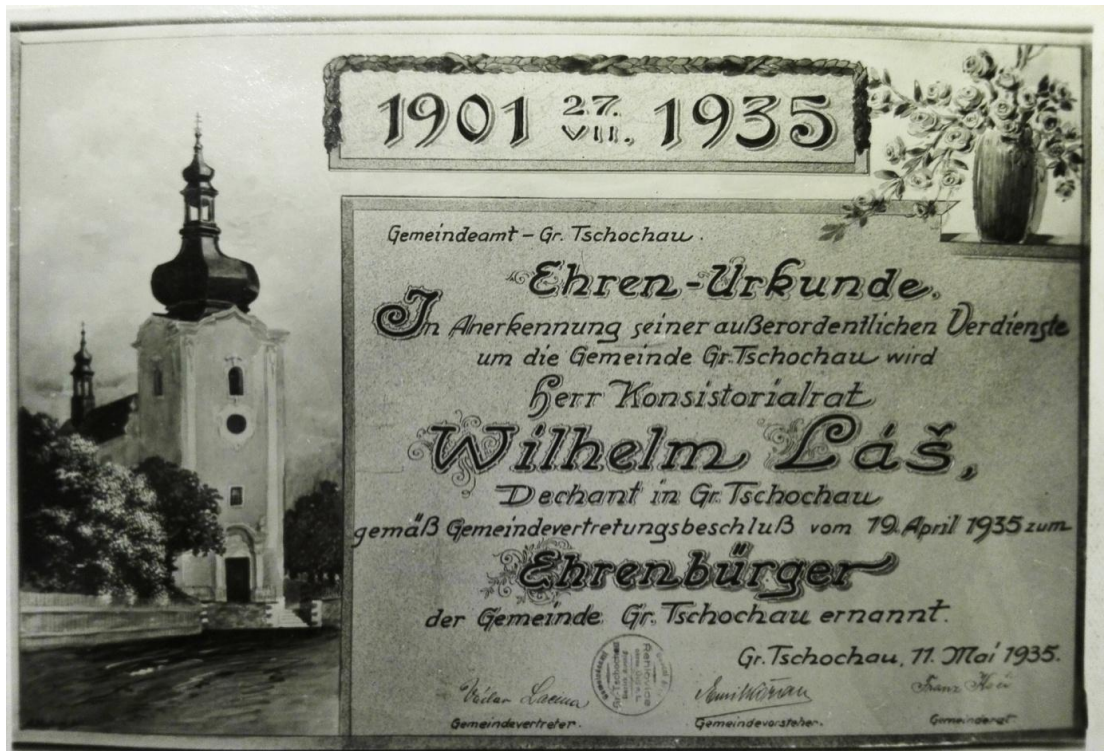 1901 27. VII. 1935
Gemeindeamt – Gr. Tschochau.
Ehren-Urkunde.
In Anerkennung seiner außerordentlichen Verdienste
um die Gemeinde Gr. Tschochau wird
Herr Konsistorialrat
Wilhelm Láš,
Dechant in Gr. Tschochau
gemäß Gemeindevertretungsbeschluß vom 19. April 1935 zum
Ehrenbürger
der Gemeinde Gr. Tschochau ernannt.
Gr. Tschochau, 11. Mai 1935.
Franz
Gemeindevertreter. Gemeindevorsteher. Gemeinderat.